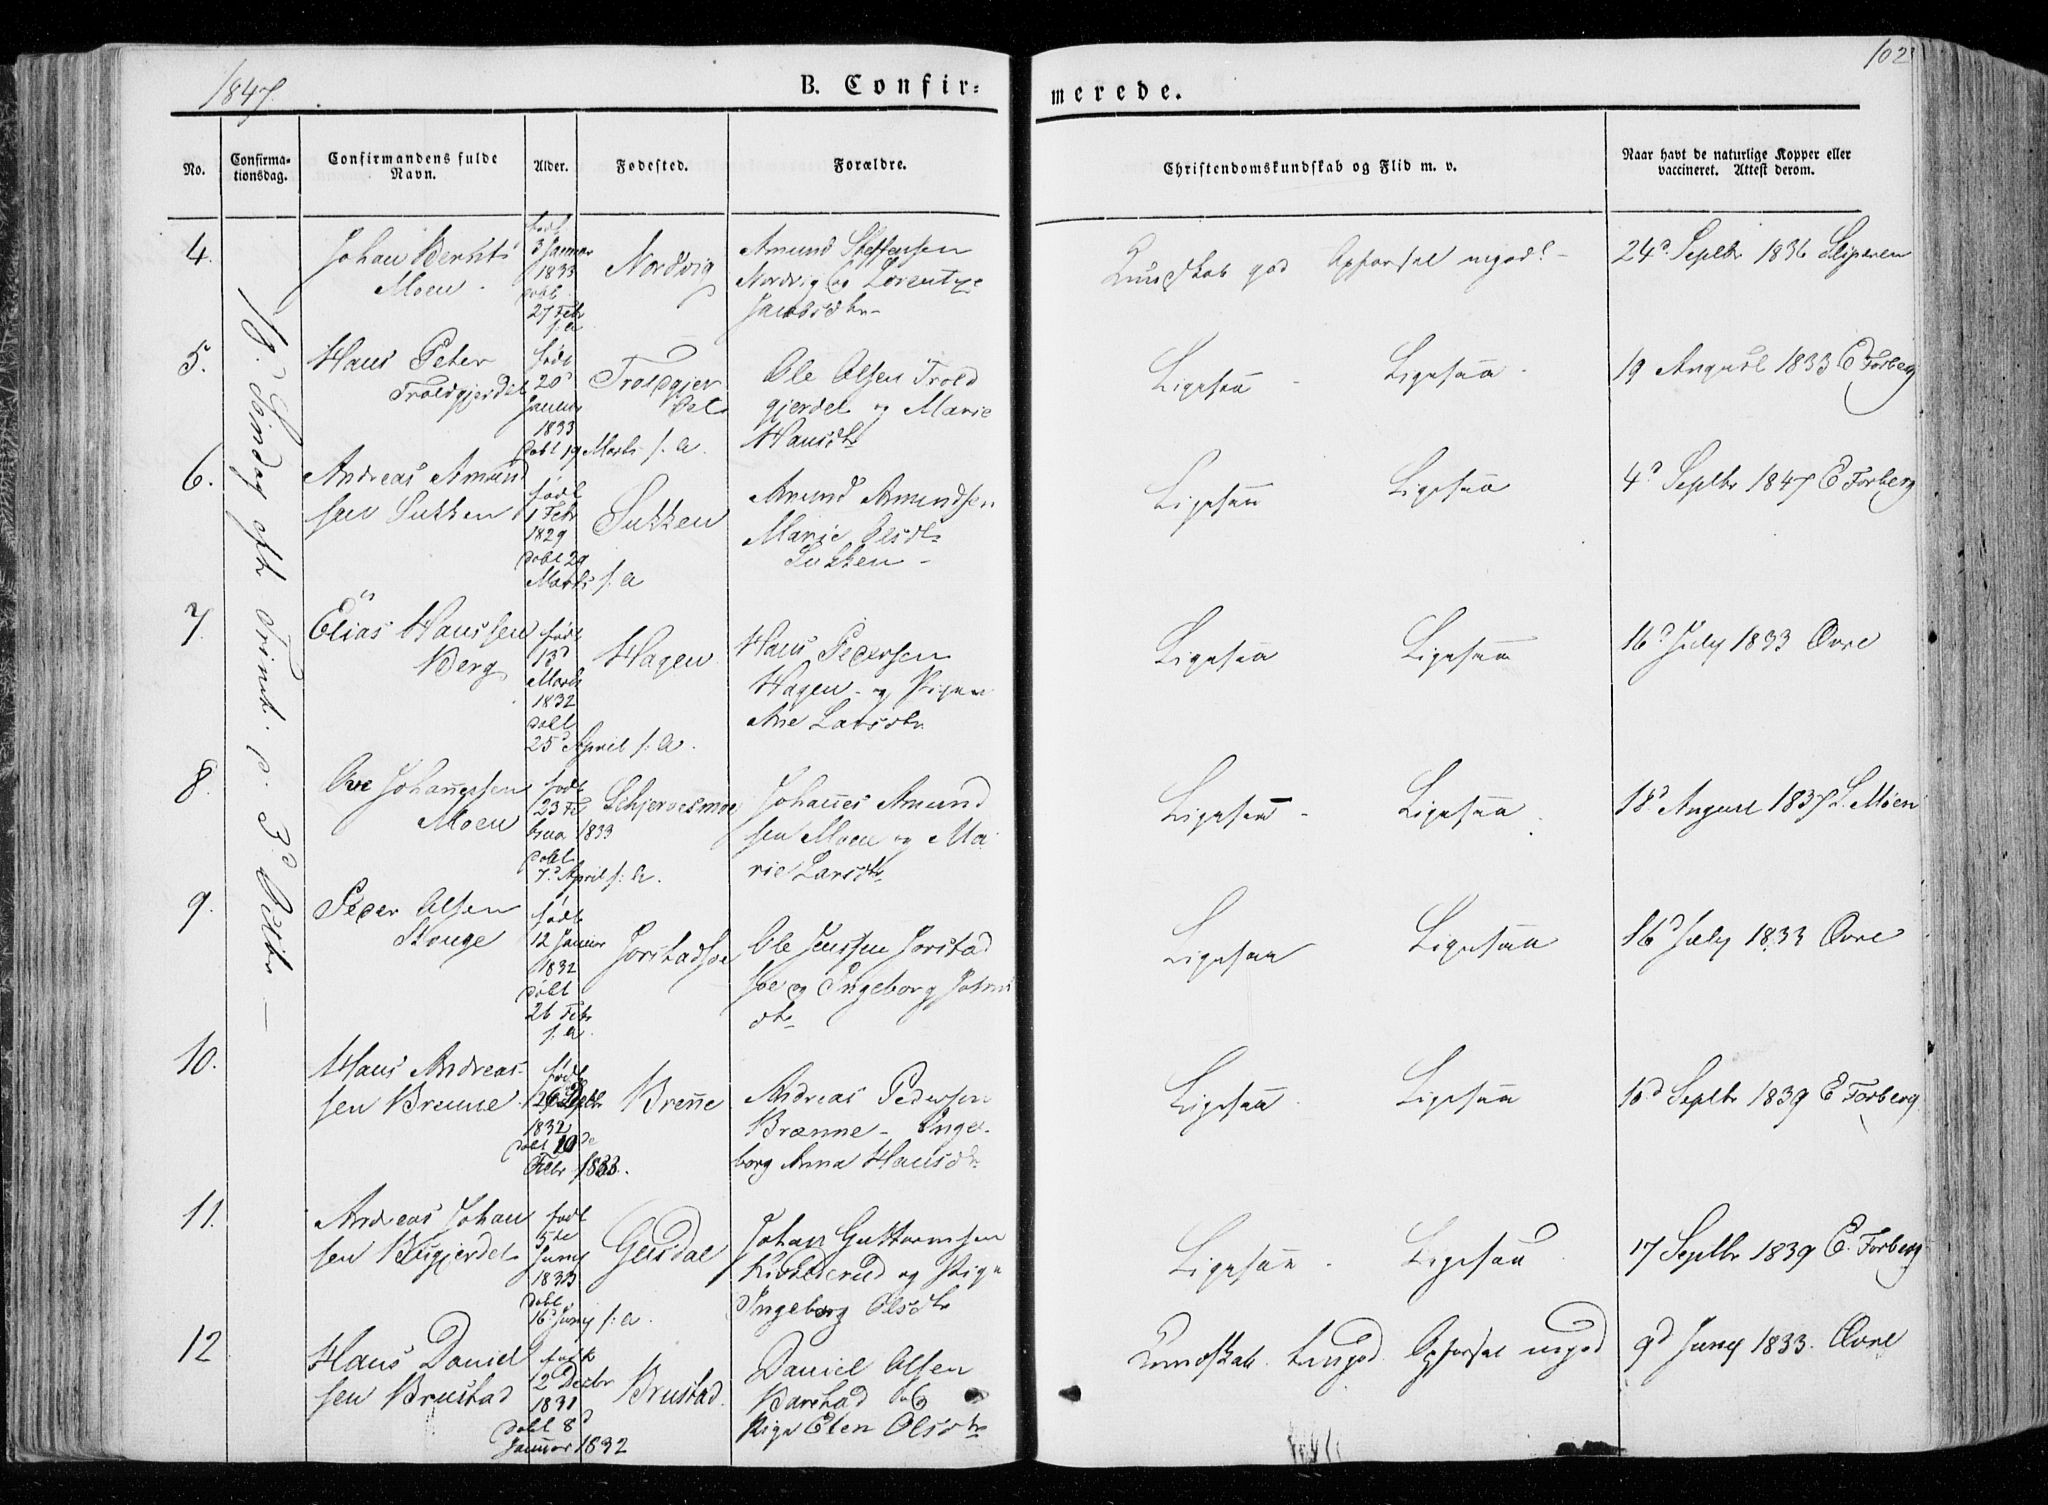 1847.
B. Confir=
merede.
102
No.
Confirma-
tionsdag.
Confirmandens fulde
Navn.
Alder.
Fødested.
Forældre.
Christendomskundskab og Flid m. v.
Naar havt de naturlige Kopper eller
vaccineret. Attest derom.
18. Søndag eft. Trinit. d. 3d Octbr —
4.
Johan Bernts
Moen
født
3 Januar
1833
døbt
27 Febr
s. a
Nordvig
Amund Steffensen
Nordvig og Lorentze
Jacobsdtr
Kundskab god Opførsel mgod.
24d Septbr 1836
5.
Hans Peter
Troldgjerdet
født
20d
Januar
1833
døbt 19 Marts s. a.
Troldgjer
det
Ole Olsen Trold
gjerdet og Marie
Hansdtr
Ligesaa Ligesaa
19 August 1833 E Forberg
6.
Andreas Amund
sen Sukken
født
1 Febr
1829
døbt 29
Marts s. a
Sukken
Amund Amundsen
Marie Olsdtr
Sukken
Ligesaa Ligesaa
4d Septbr 1847 E Forberg
7.
Elias Hanssen
Berg
født
13d
Marts
1832
døbt
25d April s. a.
Hagen
Hans Pedersen
Hagen og Pigen
Ane Larsdtr
Ligesaa Ligesaa
16d July 1833 Øvre
8.
Ove Johannessen
Moen
født
23 Fe
bruar 1833
døbt
7d April s. a.
Schjervesmoe
Johannes Amund
sen Moen og Ma
rie Larsdtr
Ligesaa Ligesaa
18d August 1837 L. Moen
9.
Peder Olsen
Houge
født
12 Januar
1832
døbt
26 Febr
s. a.
Jorstadhoe
Ole Jenssen Jorstad
hoe og Ingeborg Johns
dtr
Ligesaa Ligesaa
16d July 1833 Øvre
10.
Hans Andreas-
sen Brenne
født
1832
døbt 10de
Febr 1833.
Brenne
Andreas Pedersen
Brænne - Inge-
borg Anna Hansdtr
Ligesaa Ligesaa
10d Septbr 1839 E Forberg
11.
Andreas Johan
sen Bygjerdet
født
5de
Juny
1833
døbt
16d Juny s. a.
Gusdal
Johan Guttormsen
og Pige
Ingeborg Olsdtr
Ligesaa Ligesaa
17 Septbr 1839 E. Forberg
12
Hans Daniel
sen Brustad
født
2 Decbr
1831
døbt 8d
Januar 1832
Brustad.
Daniel Olsen
og
Pige Elen Olsdtr
Kundskab. temgod. Opførsel mgod
9d Juny 1833. Øvre